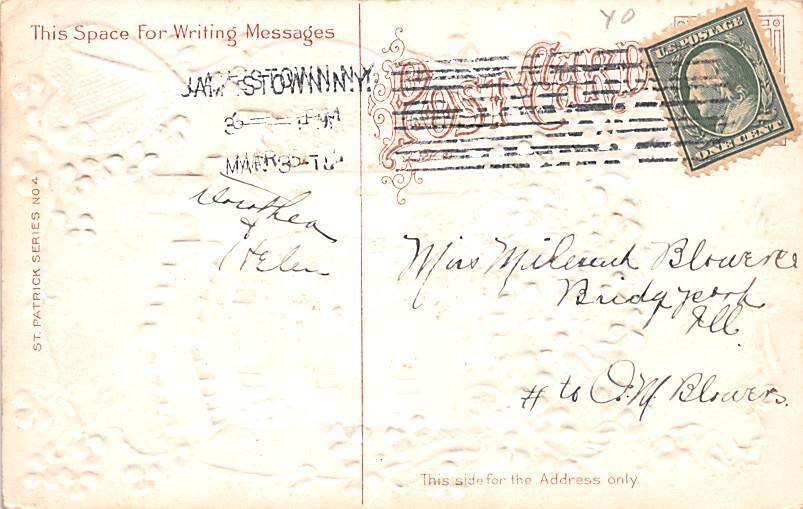 This Space For Writing Messages
YO
POST CARD
U.S. POSTAGE
ONE CENT
JAMESTOWN, N.Y.
MAR
ST. PATRICK SERIES NO 4
Dorothea
&
Helen
Miss Blowers
Bridgeport
Ill
# to O.M. Blowers.
This side for the Address only.